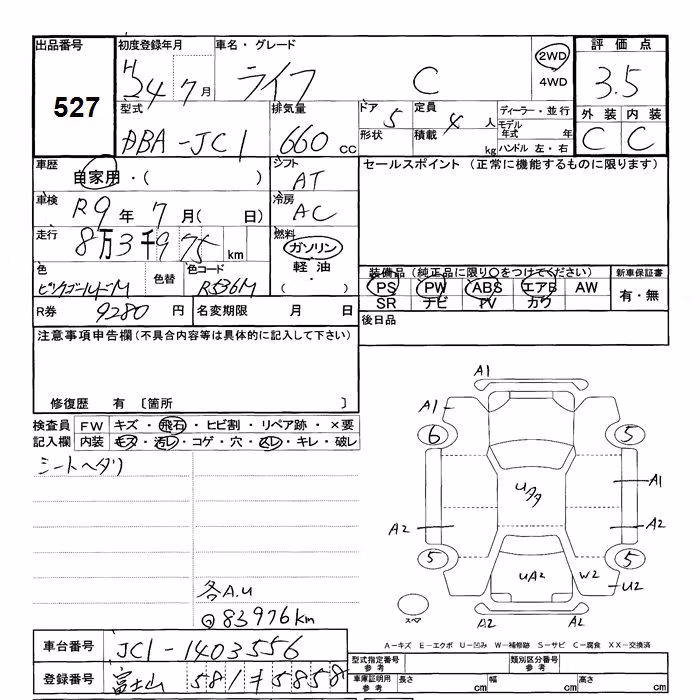 出品番号 初度登録年月 車名・グレード 2WD 評価点
527 H24 7月 ライフ C 4WD 3.5
型式 排気量 ドア 5 定員 4人 ディーラー・並行 外装 内装
DBA-JC1 660cc 形状 積載 kg モデル年式 年 C C
ハンドル 左・右
車歴 自家用・( ) シフト AT セールスポイント (正常に機能するものに限ります)
車検 R9年 7月( 日) 冷房 AC
走行 8万3千975km 燃料 ガソリン
軽油・( )
色 ピンクゴールドM 色替 色コード R536M
装備品(純正品に限り○をつけてください) 新車保証書
PS PW ABS エアB AW 有・無
SR ナビ PV カワ
R券 9280円 名変期限 月 日 後日品
注意事項申告欄(不具合内容等は具体的に記入して下さい)
修復歴 有 〔箇所 〕
検査員 FW キズ・飛石・ヒビ割・リペア跡・×要
記入欄 内装 キズ・汚レ・コゲ・穴・スレ・キレ・破レ
シートヘタリ
A1
A1
6 5
A1
UAA
A2 A2
5 5
UA2 W2
U2
スペア A2 A2
各A.U
83976km
A-キズ E-エクボ U-凹み W-補修跡 S-サビ C-腐食 XX-交換済
車台番号 JC1-1403556
型式指定番号 参考 類別区分番号 参考
登録番号 富士山 581 チ 5858
車庫証明用 参考 長さ cm 幅 cm 高さ cm